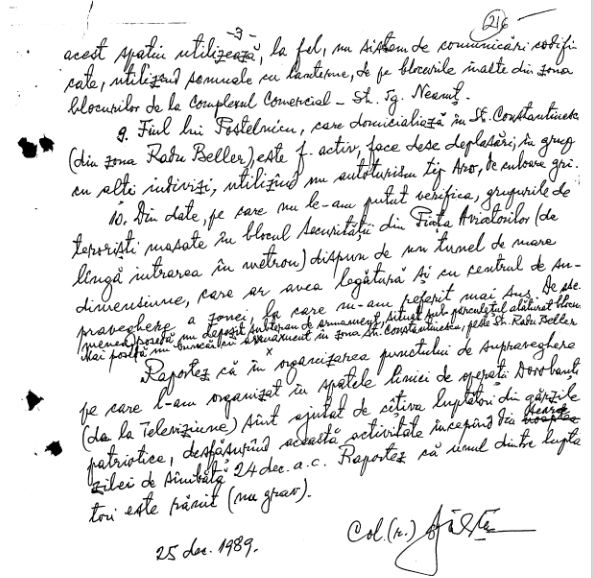 -3-
216
acest spațiu utilizează, la fel, un sistem de comunicări codifi
cate, utilizînd semnale cu lanterne, de pe blocurile înalte din zona
blocurilor de la Complexul Comercial – St. Tg. Neamț.
9. Fiul lui Postelnicu, care domiciliază în St. Constantinescu
(din zona Radu Beller), este f. activ, face dese deplasări, în grup
cu alți indivizi, utilizînd un autoturism tip Aro, de culoare gri.
10. Din date, pe care nu le-am putut verifica, grupurile de
teroriști masate în blocul Securității din Piața Aviatorilor (de
lîngă intrarea în metrou) dispun de un tunel de mare
dimensiune, care ar avea legătură și cu centrul de su-
praveghere a zonei, la care m-am referit mai sus. De ase
menea, posedă un deposit subteran de armament, situat sub parculețul alăturat blocu
Mai posedă un buncăr cu armament în zona St. Constantinescu, pe St. Radu Beller
x
Raportez că în organizarea punctului de supraveghere
pe care l-am organizat în spatele liniei de operații Dorobanți
(da la Televiziune) sînt ajutat de cîțiva luptători din gărzile
patriotice, desfășurînd această activitate începînd din seara
zilei de sîmbătă 24 dec. a.c. Raportez că unul dintre luptă
tori este rănit (nu grav).
25 dec. 1989.
Col.(r.)